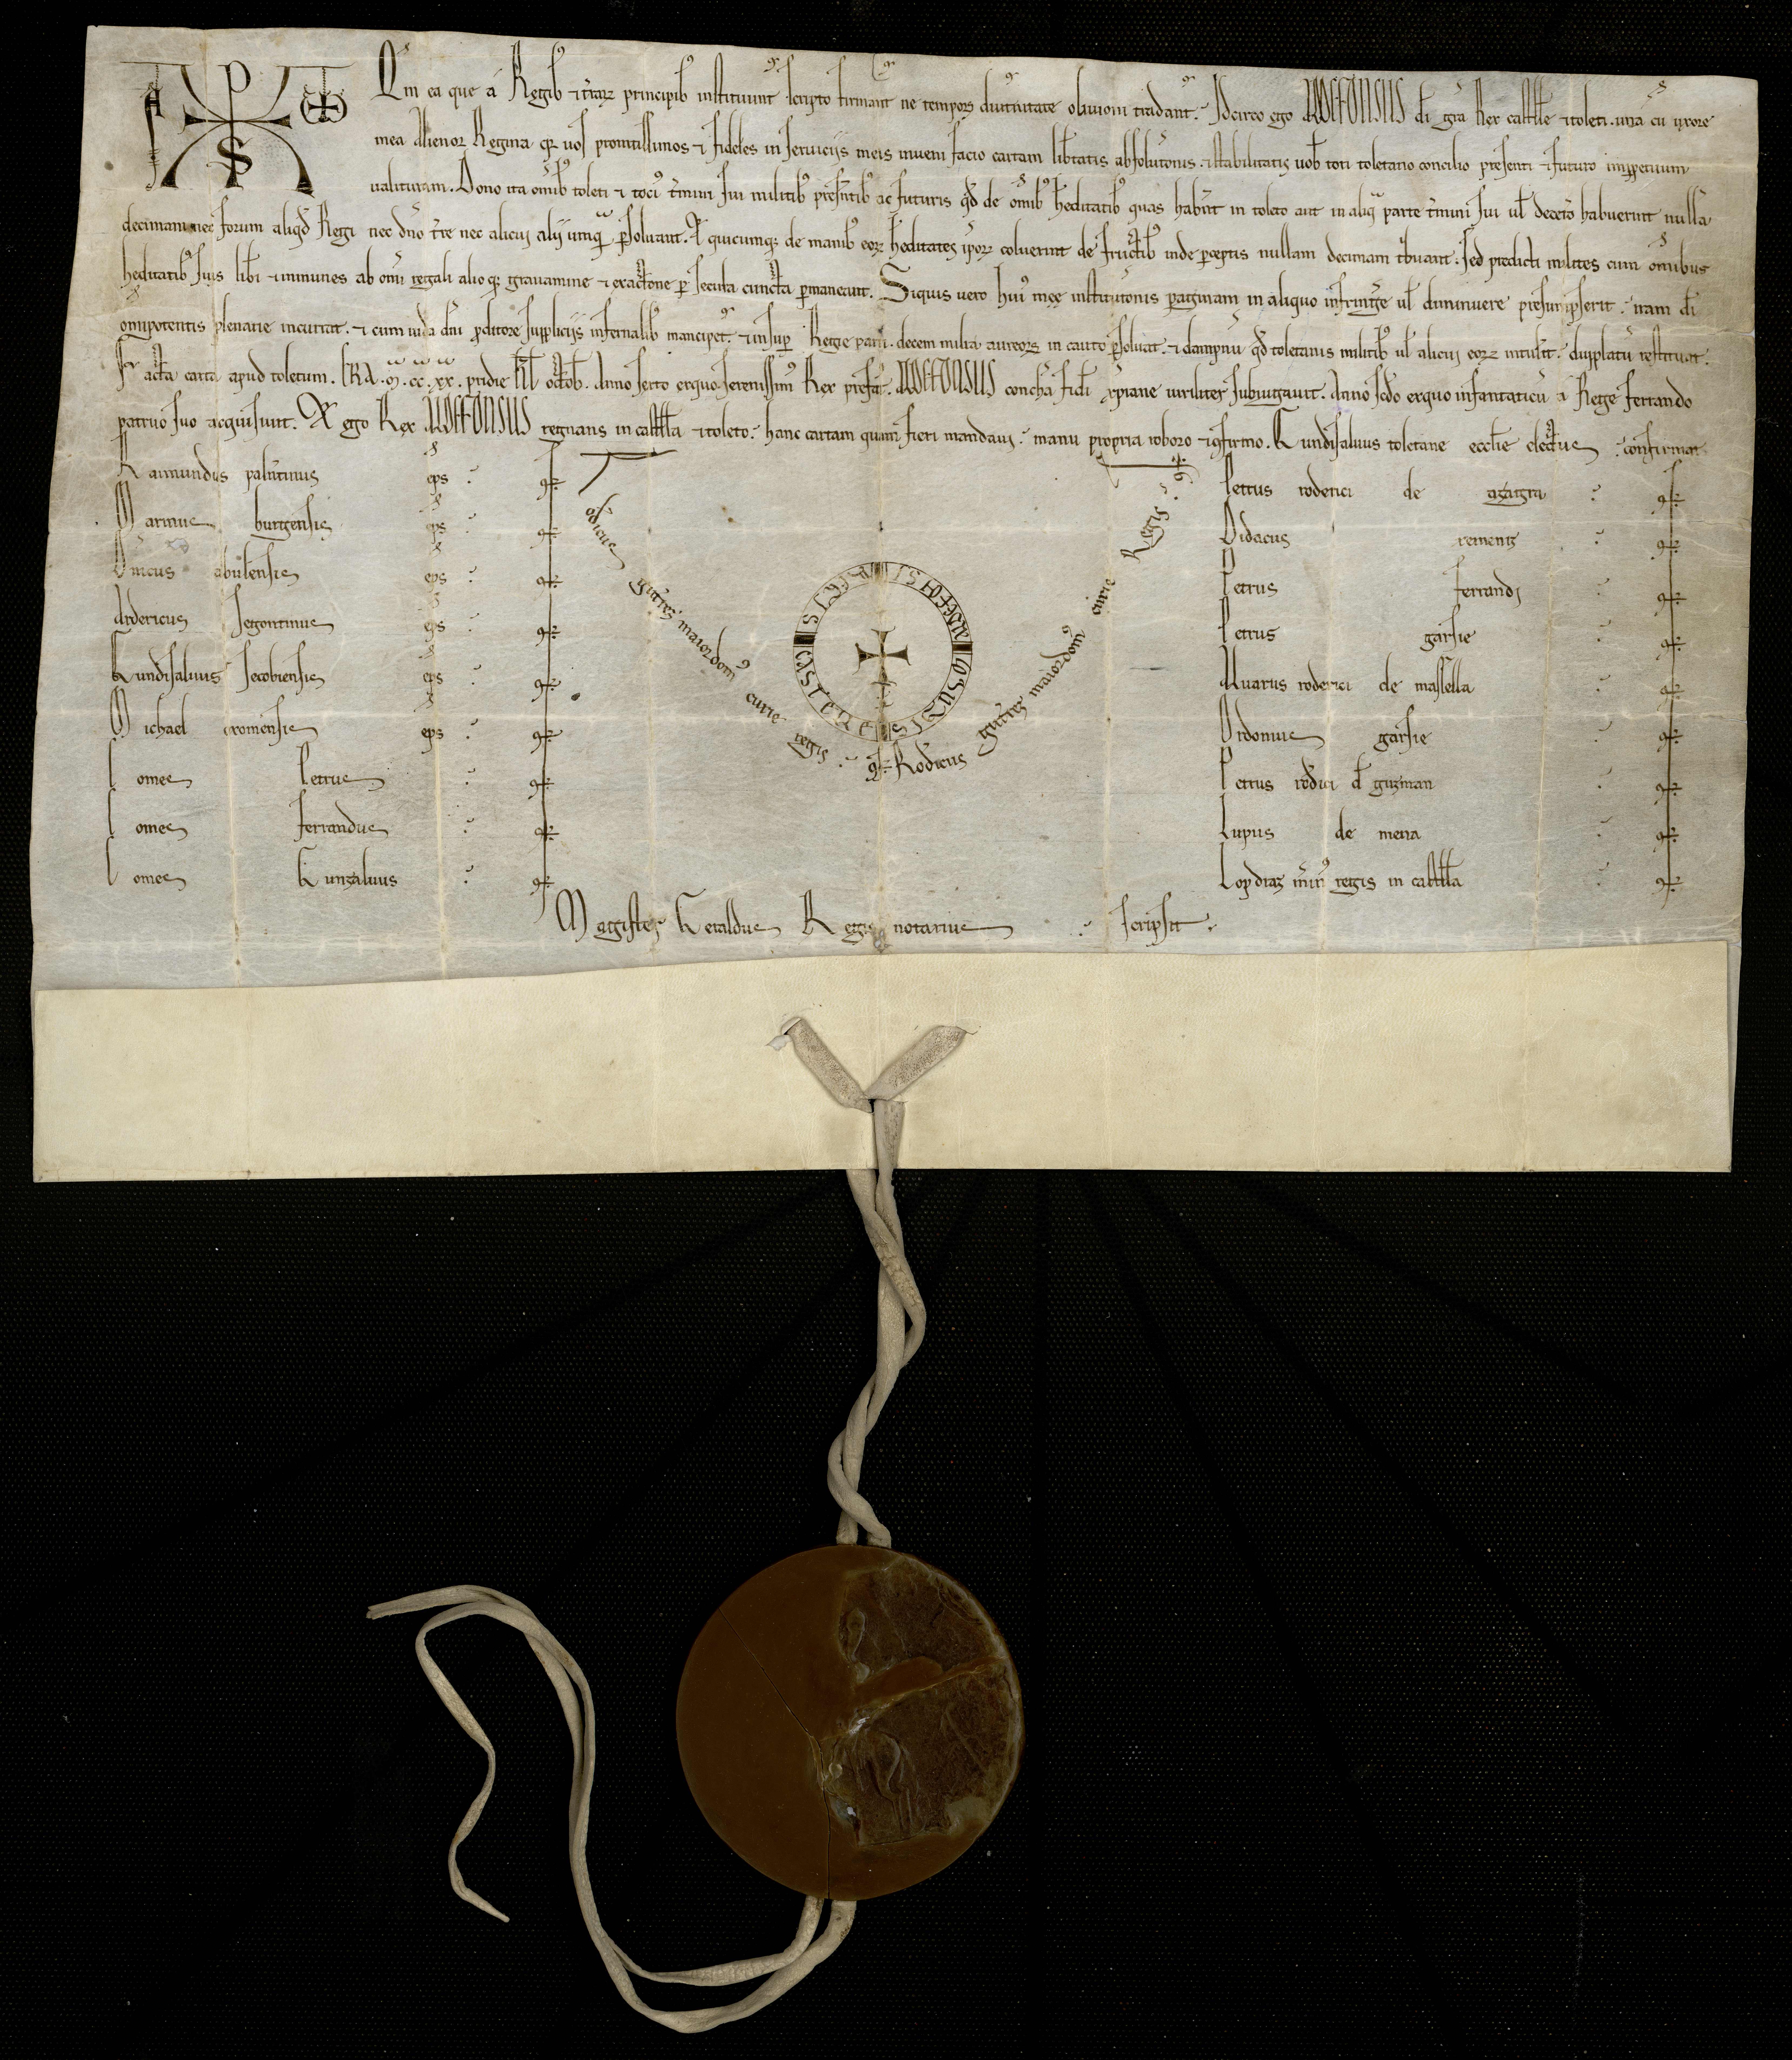 Qm ea que a Regib' et t̃raꝝ principib' instituunt scripto firmant' ne tempoꝝ diut'nitate oblivioni tradant'. Idcirco ego ALDEFONSUS di gr̃a Rex castelle et toleti. una cũ uxore
mea Alienor Regina qr uos promtissimos et fideles in seruiciis meis inueni facio cartam lib̃tatis absolut̃onis. et stabilitatis uob̃ toti toletano concilio presenti et futuro imp̃petuum
ualituram. Dono ita om̃ib' toleti et toci' t̃mini sui militib' presẽntib' ac futuris qd̃ de om̃ib' h̃editatib' quas hab̃nt in toleto aut in aliqᵃ parte t̃mini sui ul̃ decet̃o habuerint nullã
decimam nec forum aliqd̃ Regi nec dño t̃re nec alicui alii umqᵃ p̃soluant. Et quicumq; de manib' eoꝝ h̃editates ipoꝝ coluerint de fructib' inde p̃ceptis nullam decimam t̃buant. sed predicti milites cum om̃ibus
h̃editatib' suis lib̃i et immunes ab om̃i regali alioq; grauamine et exact̃one p̃ secula cuncta p̃maneant. Siquis uero hui' mee institut̃onis paginam in aliquo infring̃e ul̃ diminuere presumpserit. iram di
om̃ipotentis plenarie incurrat. et cum iuda dñi p̃ditore suppliciis infernalib' mancipet'. et insup̃ Regie parti. decem milia aureoꝝ in cauto p̃soluat. et dampnũ qd̃ toletanis militib' ul̃ alicui eoꝝ intul̃it. dupplatũ restituat.
Fcã carta apud toletum. ERA. M. CC. XX. pridie kl̃ octob̃. Anno sexto exquo serenissim' Rex prefat'. ALDEFONSUS concham fidei xp̃iane uiriliter subiugauit. Anno scd̃o exquo infantaticũ a Rege ferrando
patruo suo acquisiuit. Et ego Rex ALDEFONSUS regnans in castella et toleto. hanc cartam quam fieri mandaui. manu propria roboro et ɔfirmo. Gundisaluus toletane ecclie electus confirmat
Raimundus palẽtinus eps ɔf.
Marinus burgensis eps ɔf.
Dñicus abulensis eps ɔf.
Ardericus segontinus eps ɔf.
Gundisaluus secobiensis eps ɔf.
Michael oxomensis eps ɔf.
Comes Petrus ɔf.
Comes ferrandus ɔf.
Comes Gunzaluus ɔf.
SIGNUM ALDEFONSI REGIS CASTELLE
Rodicus gut̃rez maiordom' curie regis ɔf.
Rodicus gut̃rez maiordom' curie Regis ɔf.
Petrus roderici de azagra ɔf.
Didacus xemenz ɔf.
Petrus ferrandi ɔf.
Petrus garsie ɔf.
Aluarus roderici de massella ɔf.
Ordonius garsie ɔf.
Petrus rod̃ici d̃ guzman ɔf.
Lupus de mena ɔf.
Lop diaz m̃in' regis in castella ɔf.
Magister Geraldus Regis notarius scripsit.